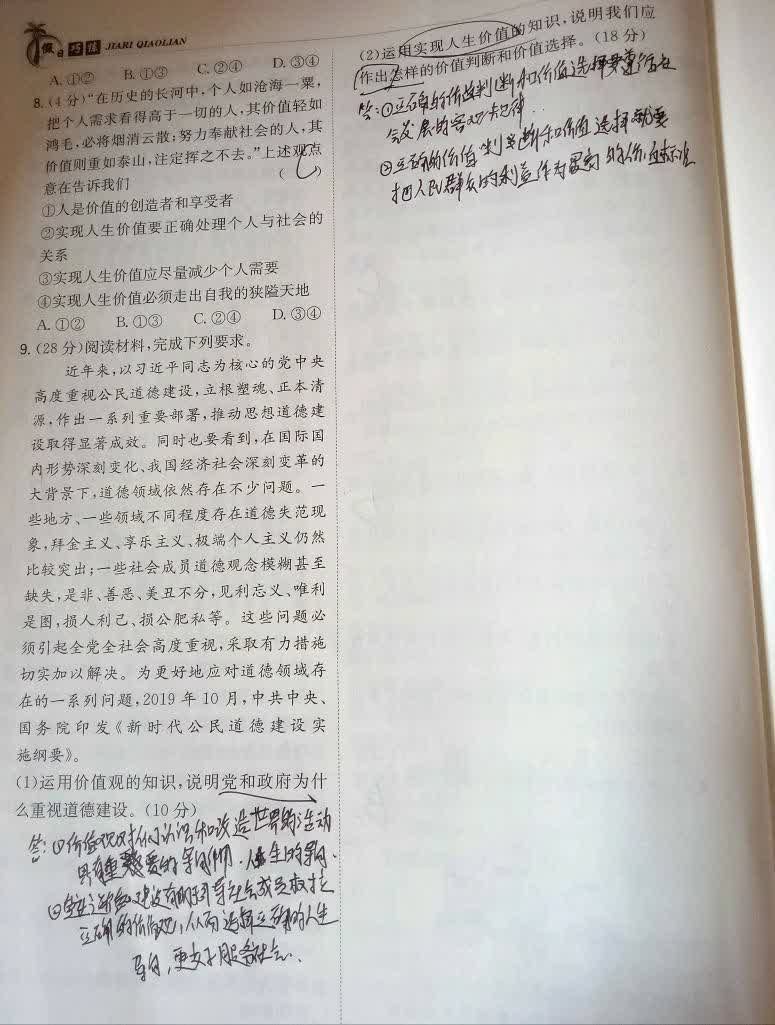 假日巧练 JIARI QIAOLIAN
A. ①② B. ①③ C. ②④ D. ③④
8. (4分)“在历史的长河中,个人如沧海一粟,
把个人需求看得高于一切的人,其价值轻如
鸿毛,必将烟消云散;努力奉献社会的人,其
价值则重如泰山,注定挥之不去。”上述观点
意在告诉我们 ( C )
①人是价值的创造者和享受者
②实现人生价值要正确处理个人与社会的
关系
③实现人生价值应尽量减少个人需要
④实现人生价值必须走出自我的狭隘天地
A. ①② B. ①③ C. ②④ D. ③④
9. (28分)阅读材料,完成下列要求。
近年来,以习近平同志为核心的党中央
高度重视公民道德建设,立根塑魂、正本清
源,作出一系列重要部署,推动思想道德建
设取得显著成效。同时也要看到,在国际国
内形势深刻变化、我国经济社会深刻变革的
大背景下,道德领域依然存在不少问题。一
些地方、一些领域不同程度存在道德失范现
象,拜金主义、享乐主义、极端个人主义仍然
比较突出;一些社会成员道德观念模糊甚至
缺失,是非、善恶、美丑不分,见利忘义、唯利
是图,损人利己、损公肥私等。这些问题必
须引起全党全社会高度重视,采取有力措施
切实加以解决。为更好地应对道德领域存
在的一系列问题,2019年10月,中共中央、
国务院印发《新时代公民道德建设实
施纲要》。
(1)运用价值观的知识,说明党和政府为什
么重视道德建设。(10分)
答:①价值观对人们认识和改造世界的活动
具有重要的导向作用,人生的导向
②道德建设有利于引导社会成员树立
正确的价值观,从而选择正确的人生
导向,更好服务社会.
(2)运用实现人生价值的知识,说明我们应
作出怎样的价值判断和价值选择。(18分)
答:①正确的价值判断和价值选择要遵循社
会发展的客观规律.
②正确的价值判断和价值选择就要
把人民群众的利益作为最高的价值标准